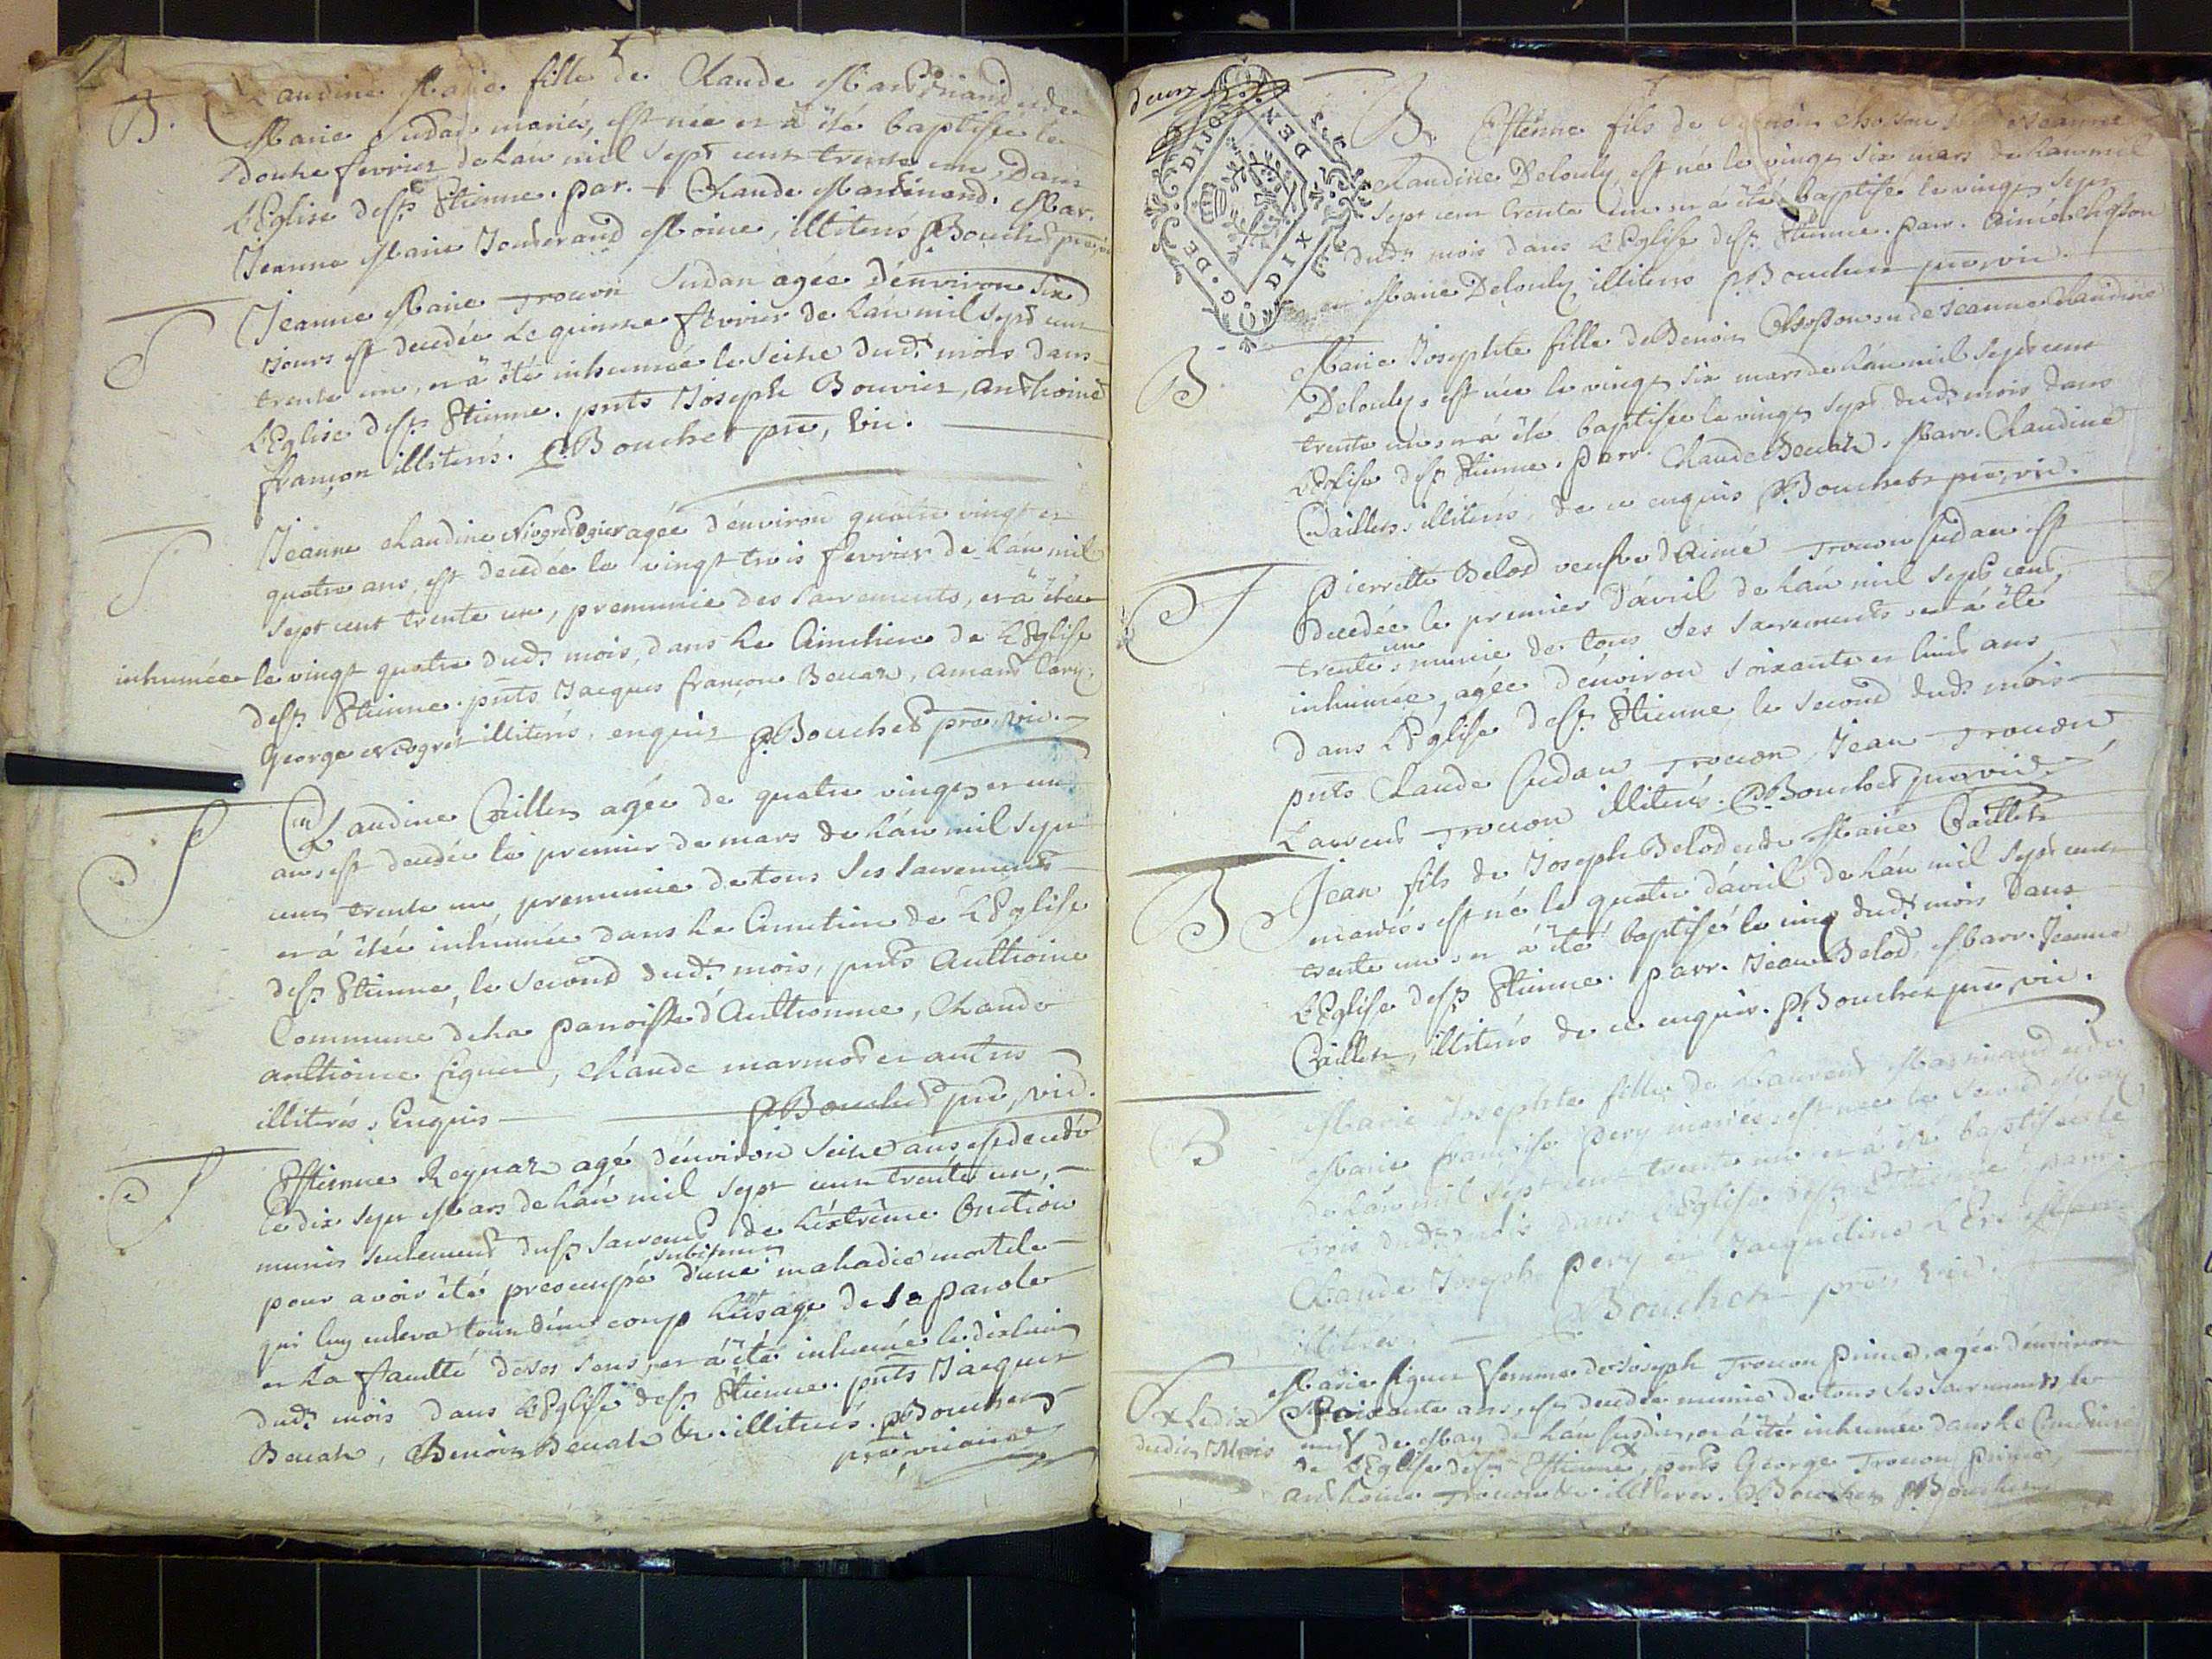 B. Claudine Marie fille de Claude Marinand et de
Marie Sudan mariés, est née et à été baptisée le
douhe fevrier de l'an mil sept cent trente un, Dans
L'Eglise de st Etienne. par. Claude Marinand. Mar.
Jeanne Marie Jouserand Moine, illiterés PBouchet pre,
T Jeanne Marie Trouon Sudan agée d'énviron six
jours est decedée Le quinze fevrier de l'an mil sept cent
trente un, et à été inhumée le Seize dud. mois dans
L'Eglise de st Etienne. pnts Joseph Bouvier, anthoine
françon illiterés. PBouchet pre, vic.
T Jeanne claudine agée d'énviron quatre vingt et
quatre ans, est decedée le vingt trois fevrier de l'an mil
sept cent trente un, premunie des sacrements, et à étée
inhumée le vingt quatre dud. mois, dans Le Cimetiere de L'Eglise
de st Etienne. pnts Jacques françon Benah, amand
George Niogret illiterés, enquis PBouchet pre, vic.
T Claudine Caillet agée de quatre vingt et un
ans, est decedée le premier de mars de l'an mil sept
cent trente un, premunie de tous ses sacrements
et à étée inhumée dans Le Cimetiere de L'Eglise
de st Etienne, le Second dud. mois, pnts Anthoine
Commune de La paroisse d'Anthonne, Claude
anthoine figuet, claude marmot et autres
illiterés, Enquis PBouchet pre, vic.
T Estienne Reynah agé d'énviron Seize ans est decedé
le dix sept Mars de l'an mil sept cent trente un,
munis seulement du st sacrement de L'éxtrême Onction
pour avoir été préocupé subitement d'une maladie mortele
qui luy enleva tout d'un coup L'usage de la parole
et La faculté de ses sens, et à été inhumé le dixhuit
dud. mois dans L'Eglise de st Etienne. pnts Jacques
Benah, Benoit Benah &c. illiterés. PBouchet
pre vicaire
G. DE DIJON
DIX DEN.
B. Estienne fils de Benoit chosson et de Jeanne
claudine Delouly est né le vingt six mars de l'an mil
sept cent trente un et à été baptisé le vingt sept
dud. mois dans L'Eglise de st Etienne. parr. Aimé chosson
et Marie Delouly illiterés PBouchet pre, vic.
B. Marie Josephte fille de Benoit Chosson et de Jeanne Claudine
Delouly, est née le vingt six mars de l'an mil sept cent
trente un, et à été baptisée le vingt sept dud. mois dans
L'Eglise de st Etienne. Parr. Claude Benah. Marr. Claudine
Caillet. illiterés, de ce enquis PBouchet pre, vic.
T Pierrette Belod veufve d'Aimé Trouon Sudan est
decedée le premier d'avril de l'an mil sept cent,
trente un, munie de tous ses sacrements et à été
inhumée, agée d'énviron soixante et huit ans
dans L'Eglise de st Etienne le second dud. mois
pnts Claude Sudan Trouon, Jean Trouon
Laurent Trouon illiterés. PBouchet pre vic.
B Jean fils de Joseph Belod et de Marie Caillet
mariés, est né le quatre d'avril de l'an mil sept cent
trente un, et à été baptisé le cinq dud. mois dans
L'Eglise de st Etienne. parr. Jean Belod, Marr. Jeanne
Caillet, illiterés de ce enquis. PBouchet pre, vic.
B Marie Josephte fille de Laurent Marinand et de
Marie françoise Pery mariés, est née le second May
de l'an mil sept cent trente un et à été baptisée le
trois dud. mois dans L'Eglise de st Etienne parr.
Claude Joseph Pery et Jacqueline
illiteres. PBouchet pre, vic.
T Marie figuet femme de Joseph Trouon Prince, agée d'énviron
Soixante ans, est decedée munie de tous ses sacrements, le
neuf de May de l'an susdit, et à été inhumée dans Le Cimetiere
x Le dix
dudit Mois
de L'Eglise de st Estienne x, pnts George Trouon Prince,
anthoine Trouon &c illiteres. PBouchet PBouchet